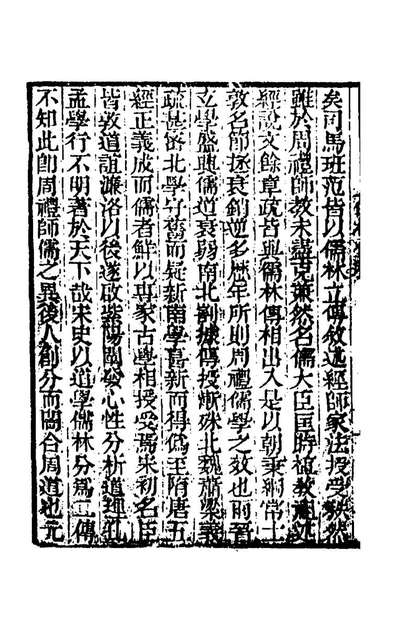 矣司馬班范皆以儒林立傳敘述經師家法授受秩然
雖於周禮師教未盡克兼然名儒大臣匡時植教祖述
經說文飾章疏皆與儒林傳相出入是以朝秉綱常士
敦名節拯衰銷逆多歷年所則周禮儒學之效也兩晉
玄學盛興儒道衰弱南北割據傳授漸殊北魏蕭梁義
疏甚密北學守舊而疑新南學喜新而得僞至隋唐五
經正義成而儒者鮮以專家古學相授受焉宋初名臣
皆敦道誼濂洛以後遂啟紫陽闡發心性分析道理孔
孟學行不明著於天下哉宋史以道學儒林分爲二傳
不知此卽周禮師儒之異後人創分而闇合周道也元